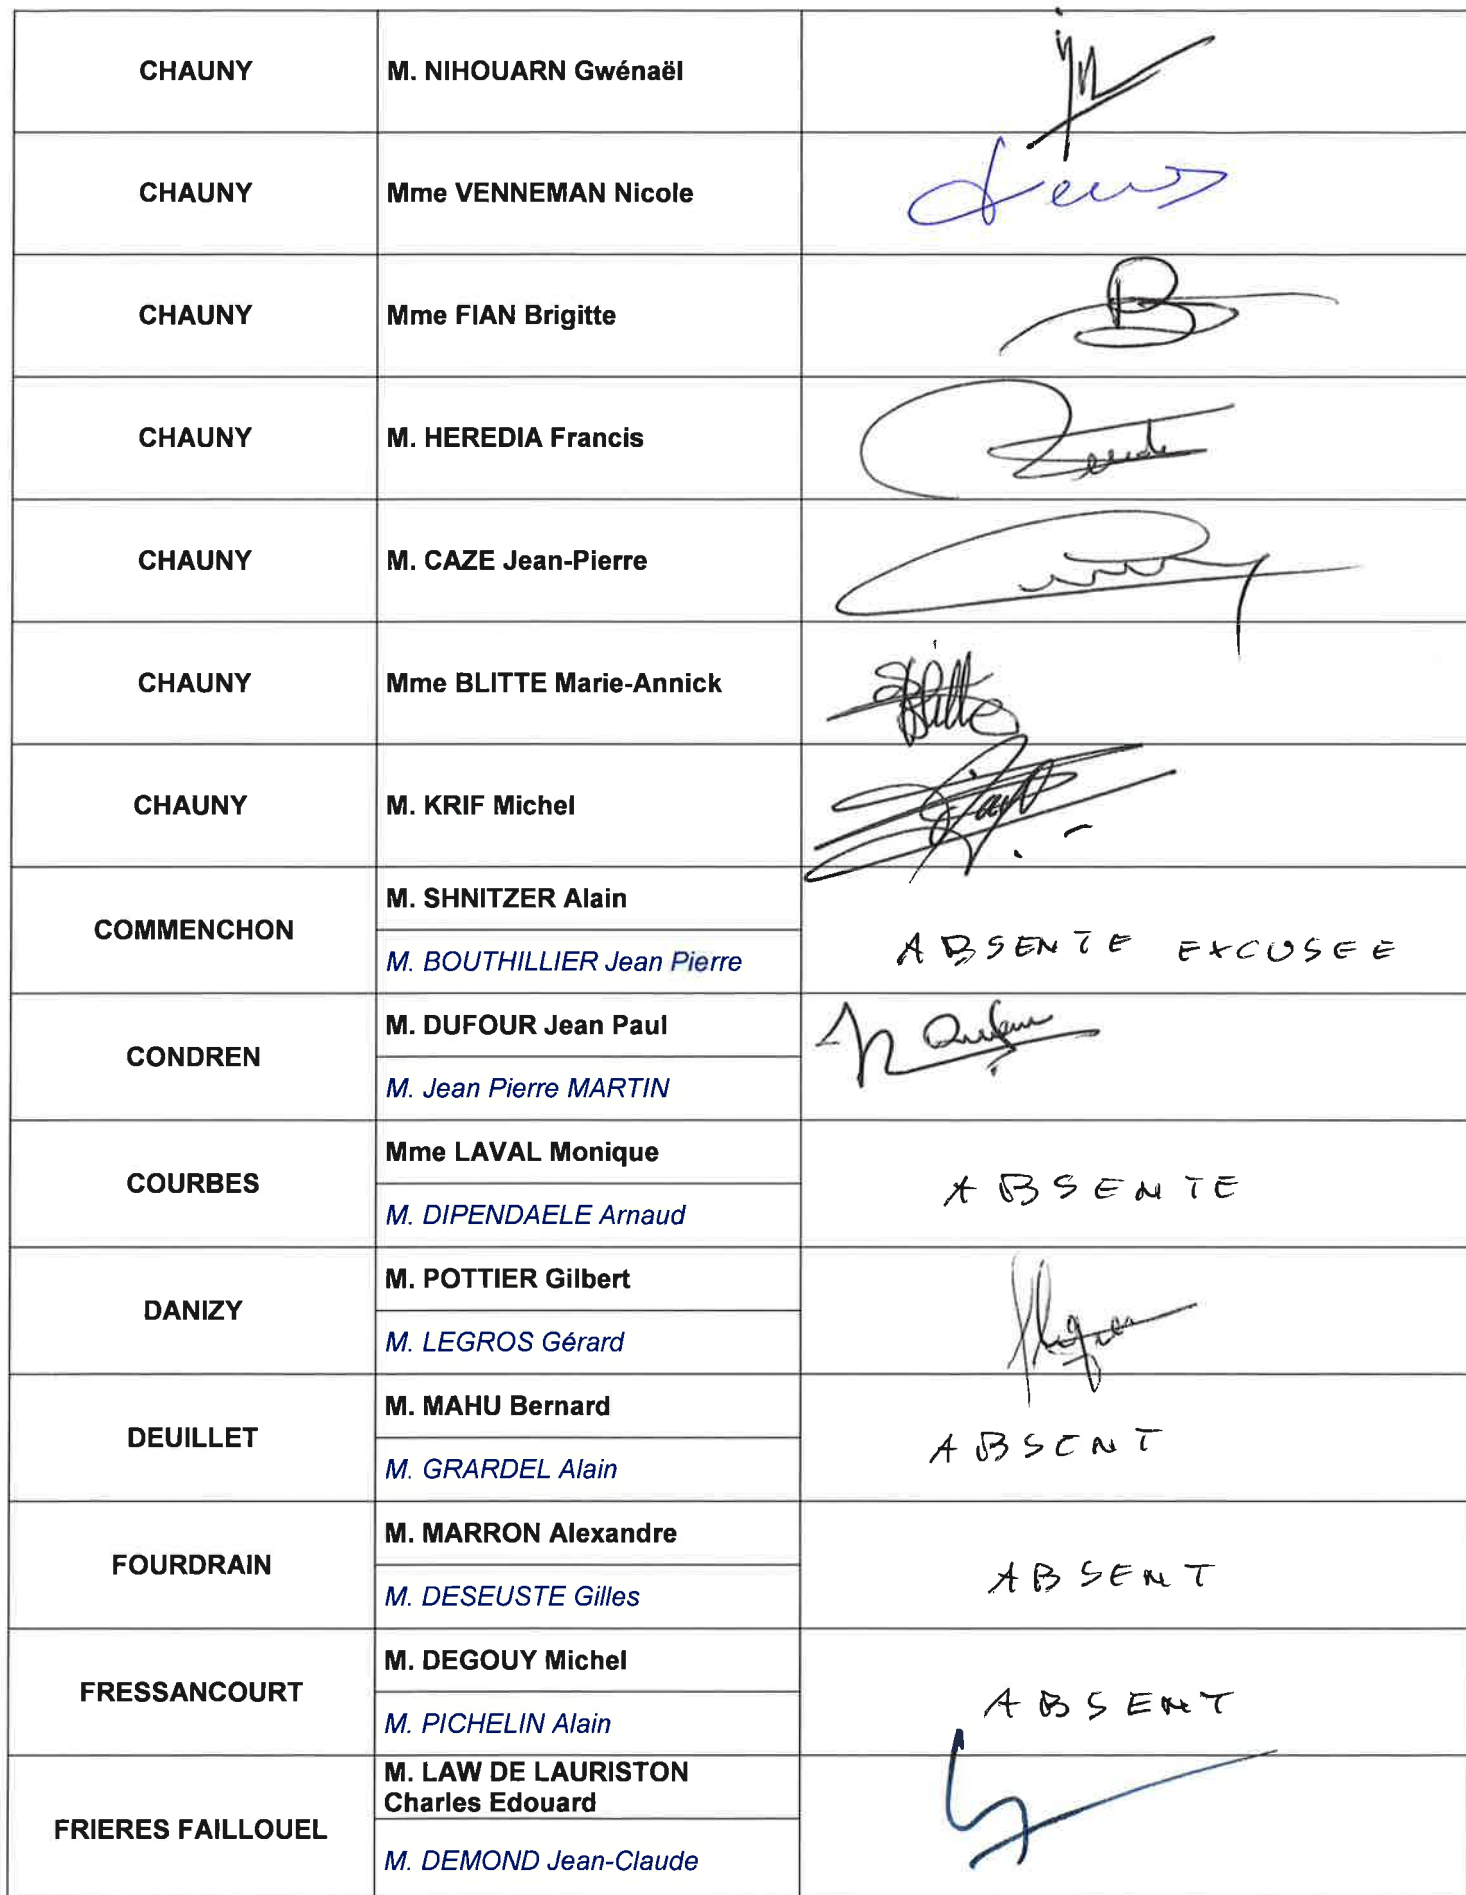 CHAUNY M. NIHOUARN Gwénaël
CHAUNY Mme VENNEMAN Nicole
CHAUNY Mme FIAN Brigitte
CHAUNY M. HEREDIA Francis
CHAUNY M. CAZE Jean-Pierre
CHAUNY Mme BLITTE Marie-Annick
CHAUNY M. KRIF Michel
COMMENCHON
M. SHNITZER Alain
M. BOUTHILLIER Jean Pierre
ABSENTE EXCUSEE
CONDREN
M. DUFOUR Jean Paul
M. Jean Pierre MARTIN
COURBES
Mme LAVAL Monique
M. DIPENDAELE Arnaud
ABSENTE
DANIZY
M. POTTIER Gilbert
M. LEGROS Gérard
DEUILLET
M. MAHU Bernard
M. GRARDEL Alain
ABSENT
FOURDRAIN
M. MARRON Alexandre
M. DESEUSTE Gilles
ABSENT
FRESSANCOURT
M. DEGOUY Michel
M. PICHELIN Alain
ABSENT
FRIERES FAILLOUEL
M. LAW DE LAURISTON
Charles Edouard
M. DEMOND Jean-Claude